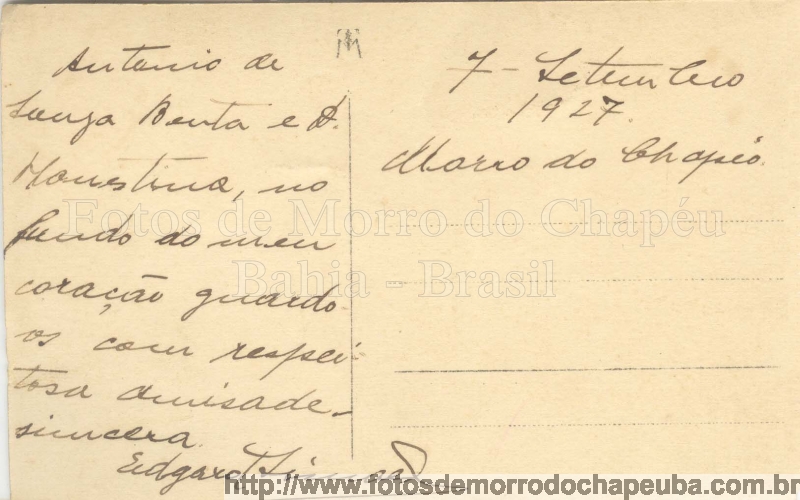 Antonio de
Souza Benta e D.
no
fundo do meu
coração guardo
os com respei-
tosa amisade
sincera.
Edgard
7 - Setembro
1927.
Morro do Chapéo.
Fotos de Morro do Chapéu
Bahia - Brasil
http://www.fotosdemorrodochapeuba.com.br